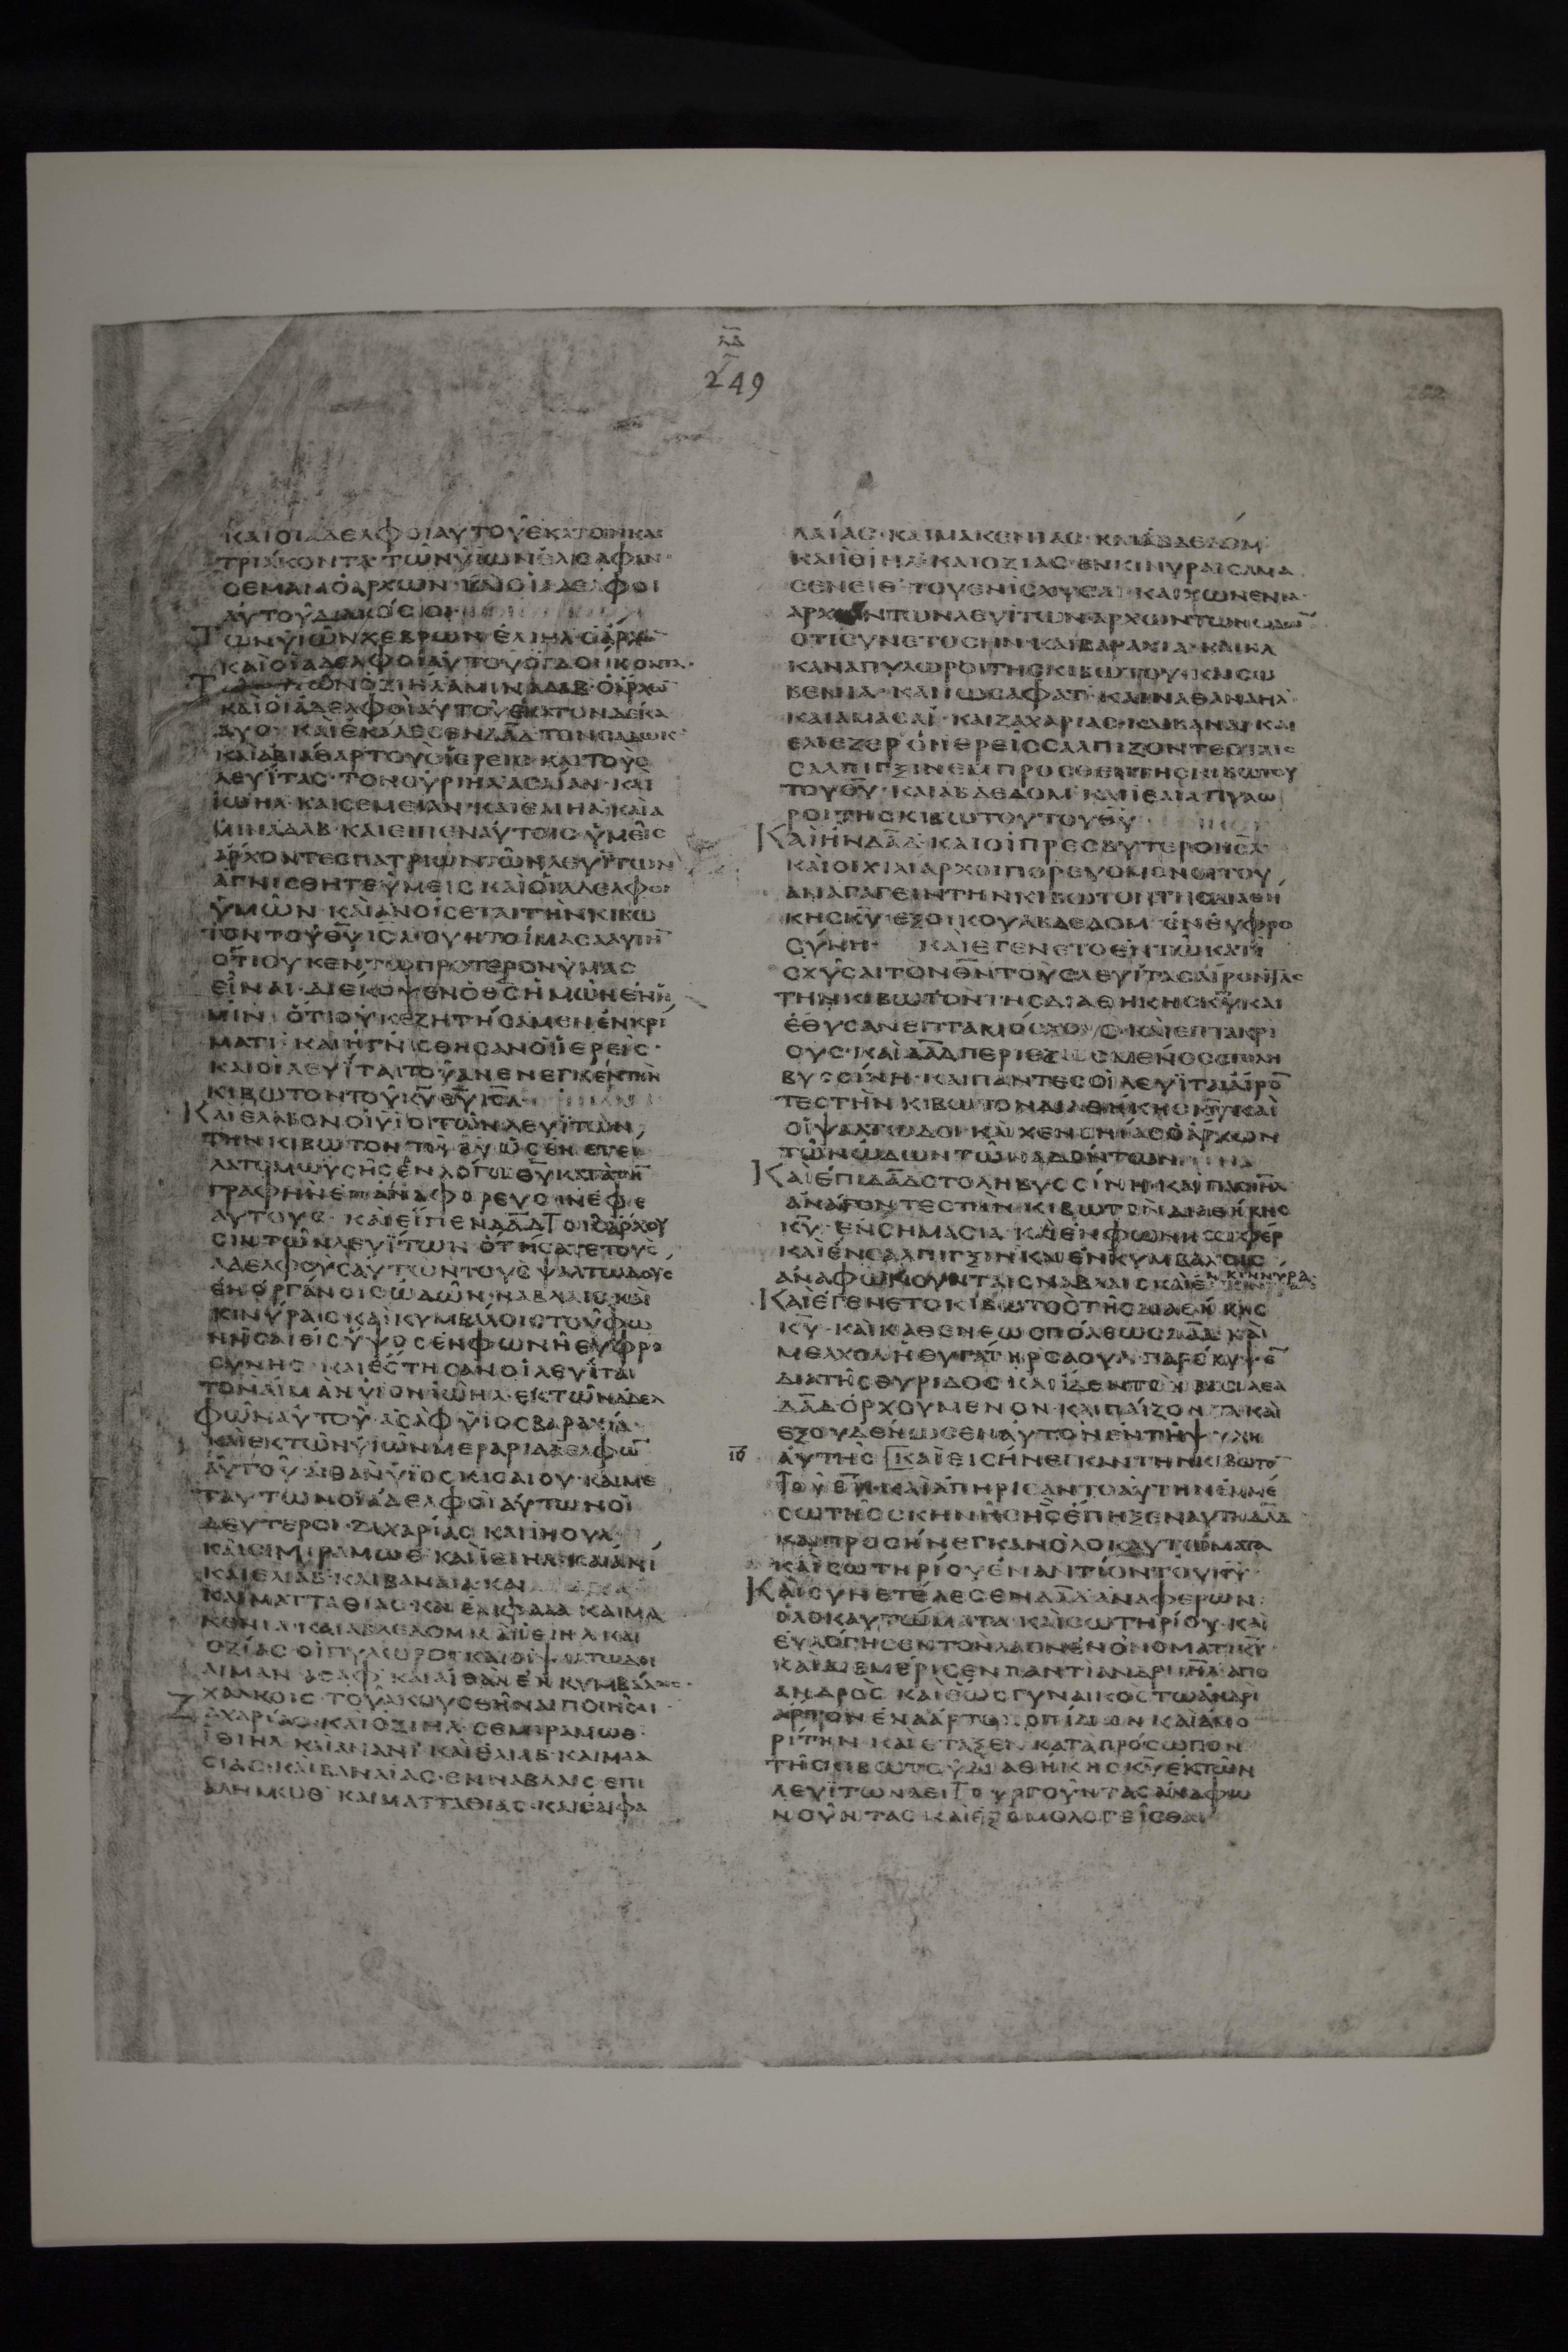 249
ΚΑΙΟΙΑΔΕΛΦΟΙΑΥΤΟΥΕΚΑΤΟΝΚΑΙ
ΤΡΙΑΚΟΝΤΑ ΤΩΝΥΙΩΝ
ΑΡΧΩΝ ΚΑΙΟΙΑΔΕΛΦΟΙ
ΑΥΤΟΥΔΙΑΚΟΣΙΟΙ
ΤΩΝΥΙΩΝΧΕΒΡΩΝ ΕΛΙΗΛ
ΚΑΙΟΙΑΔΕΛΦΟΙΑΥΤΟΥΟΓΔΟΗΚΟΝΤΑ
ΟΖΙΗΛΑΜΙΝΑΔΑΒ ΟΑΡΧΩ
ΚΑΙΟΙΑΔΕΛΦΟΙΑΥΤΟΥΕΚΑΤΟΝΔΕΚΑ
ΔΥΟ ΚΑΙΕΚΑΛΕΣΕΝΔΑΔ ΤΟΝΣΑΔΩΚ
ΚΑΙΑΒΙΑΘΑΡΤΟΥΣΙΕΡΕΙΣ ΚΑΙΤΟΥΣ
ΛΕΥΙΤΑΣ ΤΟΝΟΥΡΙΗΛ ΑΣΑΙΑΝ ΚΑΙ
ΙΩΗΛ ΚΑΙΣΕΜΕΙΑΝ ΚΑΙΕΛΙΗΛ ΚΑΙΑ
ΜΙΝΑΔΑΒ ΚΑΙΕΙΠΕΝΑΥΤΟΙΣ ΥΜΕΙΣ
ΑΡΧΟΝΤΕΣΠΑΤΡΙΩΝΤΩΝΛΕΥΙΤΩΝ
ΑΓΝΙΣΘΗΤΕΥΜΕΙΣ ΚΑΙΟΙΑΔΕΛΦΟΙ
ΥΜΩΝ ΚΑΙΑΝΟΙΣΕΤΑΙΤΗΝΚΙΒΩ
ΤΟΝΤΟΥΘΥΙΣΛΟΥΗΤΟΙΜΑΣΑΑΥΤΗ
ΟΤΙΟΥΚΕΝΤΩΠΡΟΤΕΡΟΝΥΜΑΣ
ΕΙΝΑΙ ΔΙΕΚΟΨΕΝΟΘΣΗΜΩΝΕΝΗ
ΜΙΝ ΟΤΙΟΥΚΕΖΗΤΗΣΑΜΕΝΕΝΚΡΙ
ΜΑΤΙ ΚΑΙΗΓΝΙΣΘΗΣΑΝΟΙΙΕΡΕΙΣ
ΚΑΙΟΙΛΕΥΙΤΑΙΤΟΥΑΝΕΝΕΓΚΕΝΤΗΝ
ΚΙΒΩΤΟΝΤΟΥΚΥΘΥΙΣΛ
ΚΑΙΕΛΑΒΟΝΟΙΥΙΟΙΤΩΝΛΕΥΙΤΩΝ
ΤΗΝΚΙΒΩΤΟΝΤΟΥΘΥΩΣΕΝΕΤΕΙ
ΛΑΤΟΜΩΥΣΗΣΕΝΛΟΓΩΘΥΚΑΤΑΤΗ
ΓΡΑΦΗΝ
ΑΥΤΟΥΣ ΚΑΙΕΙΠΕΝΔΑΔΤΟΙΣΑΡΧΟΥ
ΣΙΝΤΩΝΛΕΥΙΤΩΝ ΣΤΗΣΑΤΕΤΟΥΣ
ΑΔΕΛΦΟΥΣΑΥΤΩΝΤΟΥΣΨΑΛΤΩΔΟΥΣ
ΕΝΟΡΓΑΝΟΙΣΩΔΩΝ ΝΑΒΛΑΙΣΚΑΙ
ΚΙΝΥΡΑΙΣΚΑΙΚΥΜΒΑΛΟΙΣΤΟΥΦΩ
ΝΗΣΑΙΕΙΣΥΨΟΣΕΝΦΩΝΗΕΥΦΡΟ
ΣΥΝΗΣ ΚΑΙΕΣΤΗΣΑΝΟΙΛΕΥΙΤΑΙ
ΤΟΝΑΙΜΑΝΥΙΟΝΙΩΗΛ ΕΚΤΩΝΑΔΕΛ
ΦΩΝΑΥΤΟΥ ΑΣΑΦΥΙΟΣΒΑΡΑΧΙΑ
ΚΑΙΕΚΤΩΝΥΙΩΝΜΕΡΑΡΙΑΔΕΛΦΩ
ΑΥΤΟΥ ΑΙΘΑΝΥΙΟΣΚΙΣΑΙΟΥ ΚΑΙΜΕ
ΤΑΥΤΩΝΟΙΑΔΕΛΦΟΙΑΥΤΩΝΟΙ
ΔΕΥΤΕΡΟΙ ΖΑΧΑΡΙΑΣ
ΚΑΙΕΛΙΑΒ ΚΑΙΒΑΝΑΙΑ ΚΑΙ
ΚΑΙΜΑΤΤΑΘΙΑΣ ΚΑΙ ΚΑΙΜΑ
ΟΖΙΑΣ ΟΙΠΥΛΩΡΟΙ ΚΑΙΟΙΨΑΛΤΩΔΟΙ
ΑΙΜΑΝ ΑΣΑΦ ΚΑΙΑΙΘΑΝΕΝΚΥΜΒΑΛΟΙΣ
ΧΑΛΚΟΙΣ ΤΟΥΑΚΟΥΣΘΗΝΑΙΠΟΙΗΣΑΙ
ΖΑΧΑΡΙΑΣ ΚΑΙΟΖΙΗΛ ΣΕΜΙΡΑΜΩΘ
ΙΘΙΗΛ ΚΑΙΑΝΑΝΙ ΚΑΙΕΛΙΑΒ ΚΑΙΜΑΑ
ΣΙΑΣ ΚΑΙΒΑΝΑΙΑΣ ΕΝΝΑΒΛΑΙΣ ΕΠΙ
ΑΛΗΜΩΘ ΚΑΙΜΑΤΤΑΘΙΑΣ ΚΑΙΕΛΙΦΑ
ΛΑΙΑΣ ΚΑΙΜΑΚΕΝΙΑΣ ΚΑΙΑΒΔΕΔΟΜ
ΚΑΙΙΘΙΗΛ ΚΑΙΟΖΙΑΣ ΕΝΚΙΝΥΡΑΙΣΑΜΑ
ΣΕΝΕΙΘ ΤΟΥΕΝΙΣΧΥΣΑΙ ΚΑΙΧΩΝΕΝΙΑ
ΑΡΧΩΝΤΩΝΛΕΥΙΤΩΝΑΡΧΩΝΤΩΝΩΔΩ
ΟΤΙΣΥΝΕΤΟΣΗΝ ΚΑΙΒΑΡΑΧΙΑ ΚΑΙΚΑ
ΚΑΝΑΠΥΛΩΡΟΙΤΗΣΚΙΒΩΤΟΥ ΚΑΙΣΩ
ΒΕΝΙΑ ΚΑΙΙΩΣΑΦΑΤ ΚΑΙΝΑΘΑΝΑΗΛ
ΚΑΙΑΜΑΣΑΙ ΚΑΙΖΑΧΑΡΙΑΣ ΚΑΙΒΑΝΑΙ ΚΑΙ
ΕΛΙΕΖΕΡ ΟΙΙΕΡΕΙΣΣΑΛΠΙΖΟΝΤΕΣΤΑΙΣ
ΣΑΛΠΙΓΞΙΝΕΜΠΡΟΣΘΕΝΤΗΣΚΙΒΩΤΟΥ
ΤΟΥΘΥ ΚΑΙΑΒΔΕΔΟΜ ΚΑΙΙΕΑΙΑΠΥΛΩ
ΡΟΙΤΗΣΚΙΒΩΤΟΥΤΟΥΘΥ
ΚΑΙΗΝΔΑΔ ΚΑΙΟΙΠΡΕΣΒΥΤΕΡΟΙΙΣΛ
ΚΑΙΟΙΧΙΛΙΑΡΧΟΙΠΟΡΕΥΟΜΕΝΟΙΤΟΥ
ΑΝΑΓΑΓΕΙΝΤΗΝΚΙΒΩΤΟΝΤΗΣΔΙΑΘΗ
ΚΗΣΚΥ ΕΞΟΙΚΟΥΑΒΔΕΔΟΜ ΕΝΕΥΦΡΟ
ΣΥΝΗ ΚΑΙΕΓΕΝΕΤΟΕΝΤΩΚΑΤΙ
ΣΧΥΣΑΙΤΟΝΘΝΤΟΥΣΛΕΥΙΤΑΣΑΙΡΟΝΤΑΣ
ΤΗΝΚΙΒΩΤΟΝΤΗΣΔΙΑΘΗΚΗΣΚΥ ΚΑΙ
ΕΘΥΣΑΝΕΠΤΑΜΟΣΧΟΥΣ ΚΑΙΕΠΤΑΚΡΙ
ΟΥΣ ΚΑΙΔΑΔΠΕΡΙΕΖΩΣΜΕΝΟΣΣΤΟΛΗ
ΒΥΣΣΙΝΗ ΚΑΙΠΑΝΤΕΣΟΙΛΕΥΙΤΑΙΑΙΡΟ
ΤΕΣΤΗΝΚΙΒΩΤΟΝΔΙΑΘΗΚΗΣΚΥΚΑΙ
ΟΙΨΑΛΤΩΔΟΙ ΚΑΙΧΕΝΕΝΙΑΣΟΑΡΧΩΝ
ΤΩΝΩΔΩΝΤΩΝΑΔΟΝΤΩΝ
ΚΑΙΕΠΙΔΑΔΣΤΟΛΗΒΥΣΣΙΝΗ ΚΑΙΠΑΣΙΣΛ
ΑΝΑΓΟΝΤΕΣΤΗΝΚΙΒΩΤΟΝΔΙΑΘΗΚΗΣ
ΚΥ ΕΝΣΗΜΑΣΙΑ ΚΑΙΕΝΦΩΝΗΣΩΦΕΡ
ΚΑΙΕΝΣΑΛΠΙΓΞΙΝΚΑΙΕΝΚΥΜΒΑΛΟΙΣ
ΑΝΑΦΩΝΟΥΝΤΑΙΣΝΑΒΛΑΙΣΚΑΙΕΝΚΙΝΝΥΡΑ
ΚΑΙΕΓΕΝΕΤΟΚΙΒΩΤΟΣΤΗΣΔΙΑΘΗΚΗΣ
ΚΥ ΚΑΙΗΛΘΕΝΕΩΣΠΟΛΕΩΣΔΑΔ ΚΑΙ
ΜΕΛΧΟΛΗΘΥΓΑΤΗΡΣΑΟΥΛ ΠΑΡΕΚΥΨΕ
ΔΙΑΤΗΣΘΥΡΙΔΟΣ ΚΑΙΙΔΕΝΤΟΝΒΑΣΙΛΕΑ
ΔΑΔΟΡΧΟΥΜΕΝΟΝ ΚΑΙΠΑΙΖΟΝΤΑ ΚΑΙ
ΕΞΟΥΔΕΝΩΣΕΝΑΥΤΟΝΕΝΤΗΨΥΧΗ
ΑΥΤΗΣ ΚΑΙΕΙΣΗΝΕΓΚΑΝΤΗΝΚΙΒΩΤΟ
ΤΟΥΘΥ ΚΑΙΑΠΗΡΙΣΑΝΤΟΑΥΤΗΝΕΝΜΕ
ΣΩΤΗΣΣΚΗΝΗΣΗΣΕΠΗΞΕΝΑΥΤΗΔΑΔ
ΚΑΙΠΡΟΣΗΝΕΓΚΑΝΟΛΟΚΑΥΤΩΜΑΤΑ
ΚΑΙΣΩΤΗΡΙΟΥΕΝΑΝΤΙΟΝΤΟΥΘΥ
ΚΑΙΣΥΝΕΤΕΛΕΣΕΝΔΑΔΑΝΑΦΕΡΩΝ
ΟΛΟΚΑΥΤΩΜΑΤΑ ΚΑΙΣΩΤΗΡΙΟΥ ΚΑΙ
ΕΥΛΟΓΗΣΕΝΤΟΝΛΑΟΝΕΝΟΝΟΜΑΤΙΚΥ
ΚΑΙΔΙΕΜΕΡΙΣΕΝΠΑΝΤΙΑΝΔΡΙΙΣΛ ΑΠΟ
ΑΝΔΡΟΣ ΚΑΙΕΩΣΓΥΝΑΙΚΟΣΤΩΑΝΔΡΙ
ΑΡΤΟΝΕΝΑΑΡΤΟΚΟΠΙΚΟΝΚΑΙΑΜΟ
ΡΙΤΗΝ ΚΑΙΕΤΑΞΕΝΚΑΤΑΠΡΟΣΩΠΟΝ
ΤΗΣΚΙΒΩΤΟΥΔΙΑΘΗΚΗΣΚΥΕΚΤΩΝ
ΛΕΥΙΤΩΝΛΕΙΤΟΥΡΓΟΥΝΤΑΣΑΝΑΦΩ
ΝΟΥΝΤΑΣ ΚΑΙΕΞΟΜΟΛΟΓΕΙΣΘΑΙ